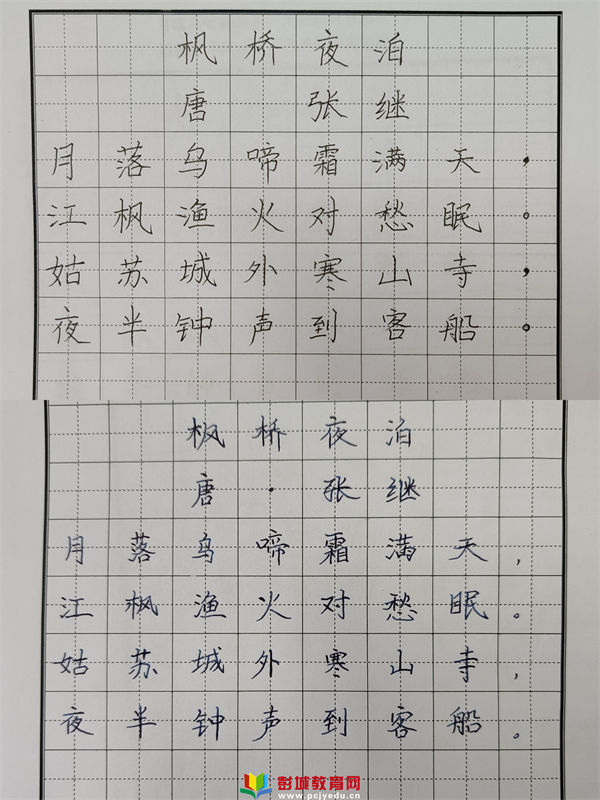 枫桥夜泊
唐 张继
月落乌啼霜满天，
江枫渔火对愁眠。
姑苏城外寒山寺，
夜半钟声到客船。
枫桥夜泊
唐·张继
月落乌啼霜满天，
江枫渔火对愁眠。
姑苏城外寒山寺，
夜半钟声到客船。
彭城教育网
www.pcjyedu.cn